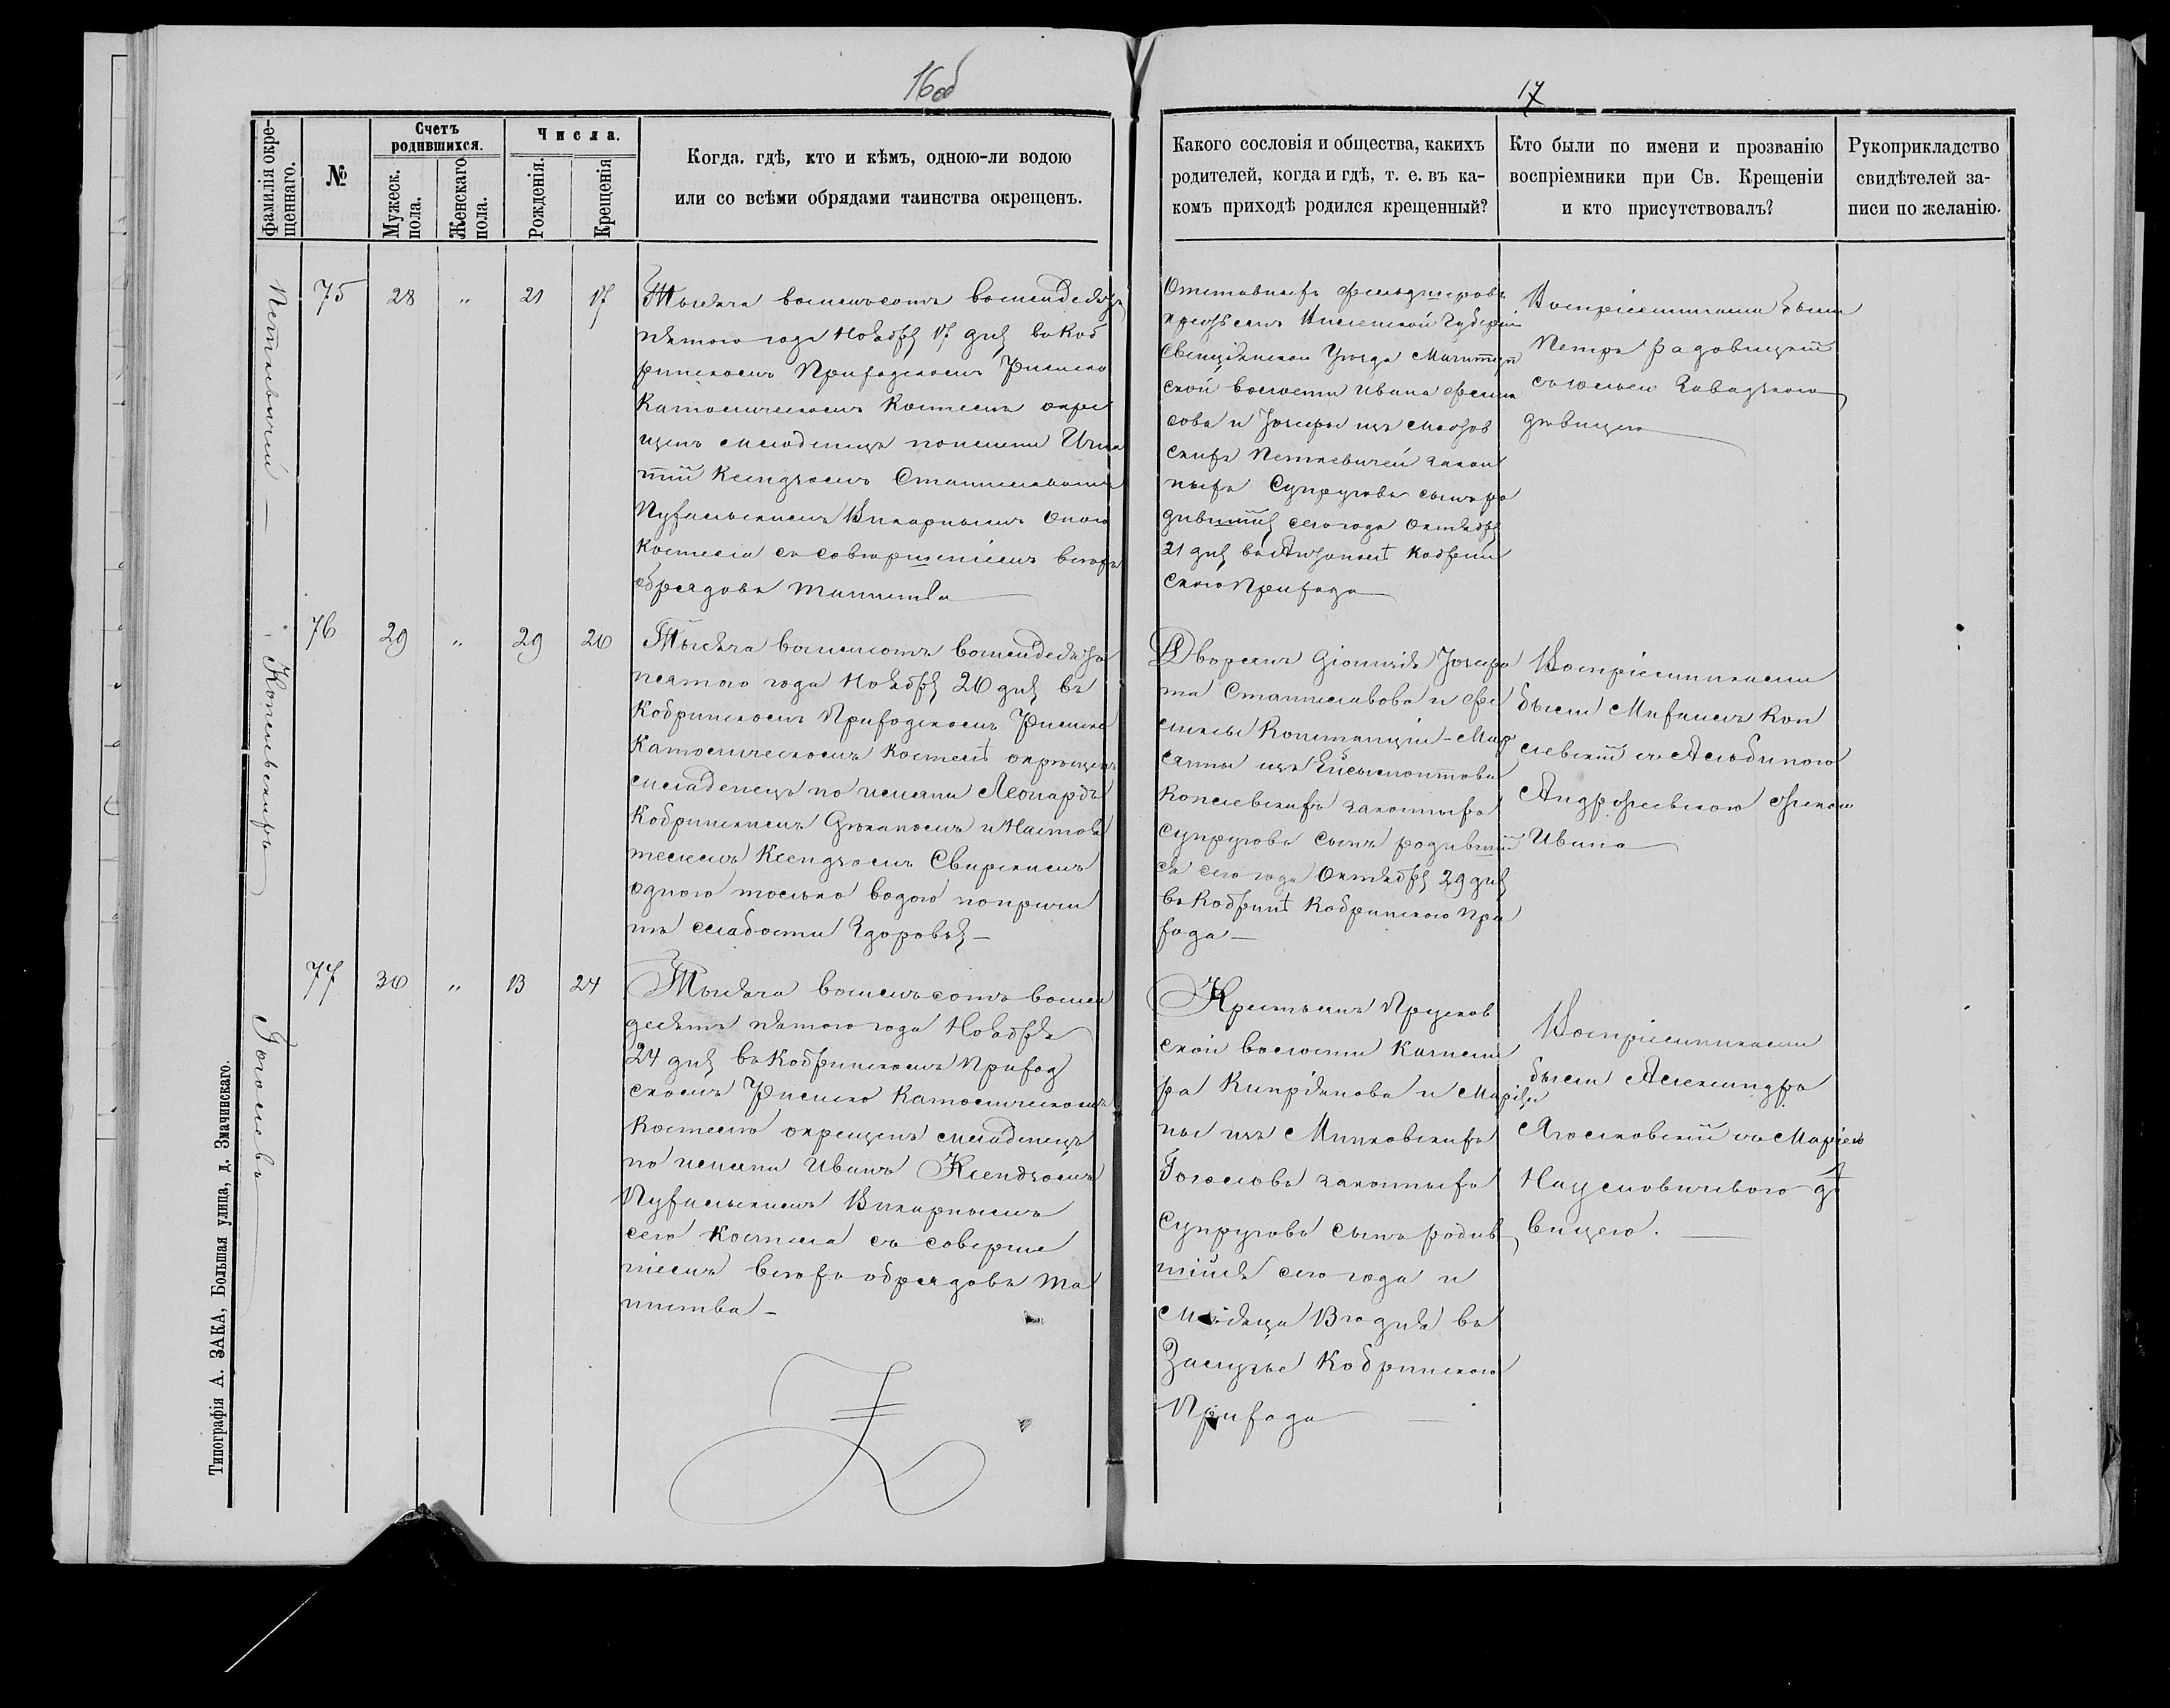 16об
17
Фамилія окре-
щеннаго.
№
Счетъ
родившихся.
Мужеск.
пола.
Женскаго
пола.
Числа.
Рожденія.
Крещенія
Когда. гдѣ, кто и кѣмъ, одною-ли водою
или со всѣми обрядами таинства окрещенъ.
Какого сословія и общества, какихъ
родителей, когда и гдѣ, т. е. въ ка-
комъ приходѣ родился крещенный?
Кто были по имени и прозванію
воспріемники при Св. Крещеніи
и кто присутствовалъ?
Рукоприкладство
свидѣтелей за-
писи по желанію.
Петкевичей
75 28 " 21 17
Тысяча восемьсотъ восемдесятъ
пятого года Ноября 17 дня въ Коб
ринскомъ Приходскомъ Римско
Католическомъ Костелѣ окре
щенъ младенецъ по имени Игна
тій Ксендзомъ Станиславомъ
Пухальскимъ Викарнымъ оного
Костела съ совершеніемъ всехъ
обрядовъ таинства
Отставныхъ фельдшеровъ
Виленской Губерніи
Свенцянского Уезда
ской волости Ивана
сова и Іозефы изъ
скихъ Петкевичей закон
ныхъ Супруговъ сынъ ро
дившійся сего года Октября
21 дня въ Кобрин
ского Прихода
Воспріемниками были
Петръ Радовицкій
съ Заводзкою
девицею
Копылевскихъ
76 29 " 29 20
Тысяча восемсотъ восемдесятъ
пятого года Ноября 20 дня въ
Кобринскомъ Приходскомъ Римско
Католическомъ Костелѣ окрещенъ
младенецъ по имени Леонардъ
Кобринскимъ Деканомъ и Настоя
телемъ Ксендзомъ Свирскимъ
одною только водою по причи
нѣ слабости здоровья
Дворянъ Діонизія Іозефа
та Станиславова и Фе
ликсы Констанціи-Мар
ганны изъ
Копылевскихъ законныхъ
супруговъ сынъ родившій
ся сего года Октября 29 дня
въ Кобринѣ Кобринского При
хода
Воспріемниками
были Михаилъ Коп
левскій съ Альбиною
Андржеевскою женою
Ивана
Гоголевъ
77 30 " 13 24
Тысяча восемьсотъ восем
десятъ пятого года Ноября
24 дня въ Кобринскомъ Приход
скомъ Римско Католическомъ
Костелѣ окрещенъ младенецъ
по имени Иванъ Ксендзомъ
Пухальскимъ Викарнымъ
сего Костела съ соверше
ніемъ всехъ обрядовъ та
инства
Крестьянъ Прусков
ской волости Казими
ра Кипріянова и Марія
ны изъ Минковскихъ
Гоголевъ законныхъ
супруговъ сынъ родив
шійся сего года и
Месяца 13го дня въ
Залузье Кобринского
Прихода
Воспріемниками
были Александръ
Ягелковскій съ Маріею
Наумовичевою дѣ
вицею.
Типографія А. ЗАКА, Большая улица, д. Значинскаго.